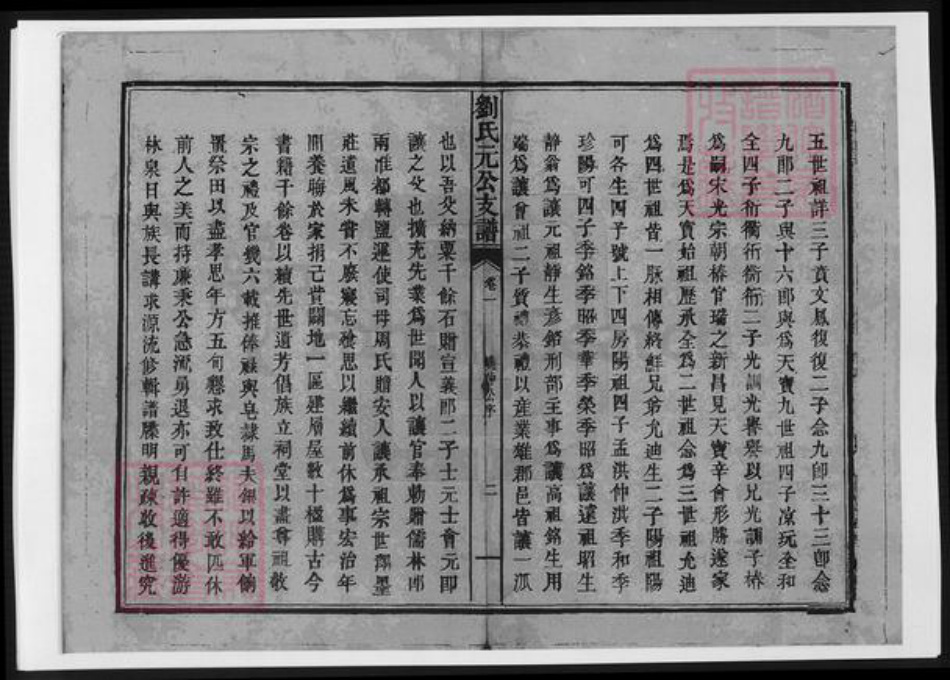 五世祖詳三子賁文鳳復復二子念九郎三十三郎念
九郎二子與十六郎與爲天寶九世祖四子凉玩全和
全四子衍衢衎衙衎二子光訓光譽譽以兄光訓子椿
爲嗣宋光宗朝椿官瑞之新昌見天寶辛會形勝遂家
焉是爲天寶始祖歷承全爲二世祖念爲三世祖允迪
爲四世祖昔一脉相傳終鮮兄弟允迪生二子陽祖陽
可各生四子號上下四房陽祖四子孟洪仲洪季和季
珍陽可四子季銘季昭季華季榮季昭爲讓遠祖昭生
靜翁爲讓元祖靜生彥銘刑部主事爲讓高祖銘生用
端爲讓曾祖二子質禮恭禮以產業雄郡邑皆讓一派
劉氏元公支譜
卷一
公序
二
也以吾父納粟千餘石贈宣義郎二子士元士會元即
讓之父也擴充先業爲世聞人以讓官奉勅贈儒林郎
兩淮都轉鹽運使司母周氏贈安人讓承祖宗世澤墨
莊道風未嘗不廢寢忘飧思以繼續前休爲事宏治年
間養聯於家捐己貲闢地一區建層屋數十楹購古今
書籍千餘卷以續先世遺芳倡族立祠堂以盡尊祖敬
宗之禮及官幾六載推俸祿與皂隸馬夫銀以羚軍餉
置祭田以盡孝思年方五旬懇求致仕終雖不敢匹休
前人之美而持廉秉公急流勇退亦可自許適得優游
林泉日與族長講求源流修輯譜牒明親疎敢後進究